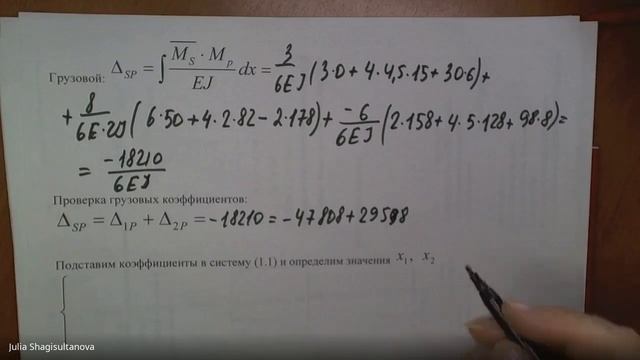 Грузовой: Δ_SP = ∫ (M̅_S · M_p / EJ) dx = 3/6EJ (3·0 + 4·4,5·15 + 30·6) +
+ 8/6E·2J (6·50 + 4·2·82 − 2·178) + −6/6EJ (2·158 + 4·5·128 + 98·8) =
= −18210/6EJ
Проверка грузовых коэффициентов:
Δ_SP = Δ_1P + Δ_2P = −18210 = −47808 + 29598
Подставим коэффициенты в систему (1.1) и определим значения x₁, x₂
{
Julia Shagisultanova